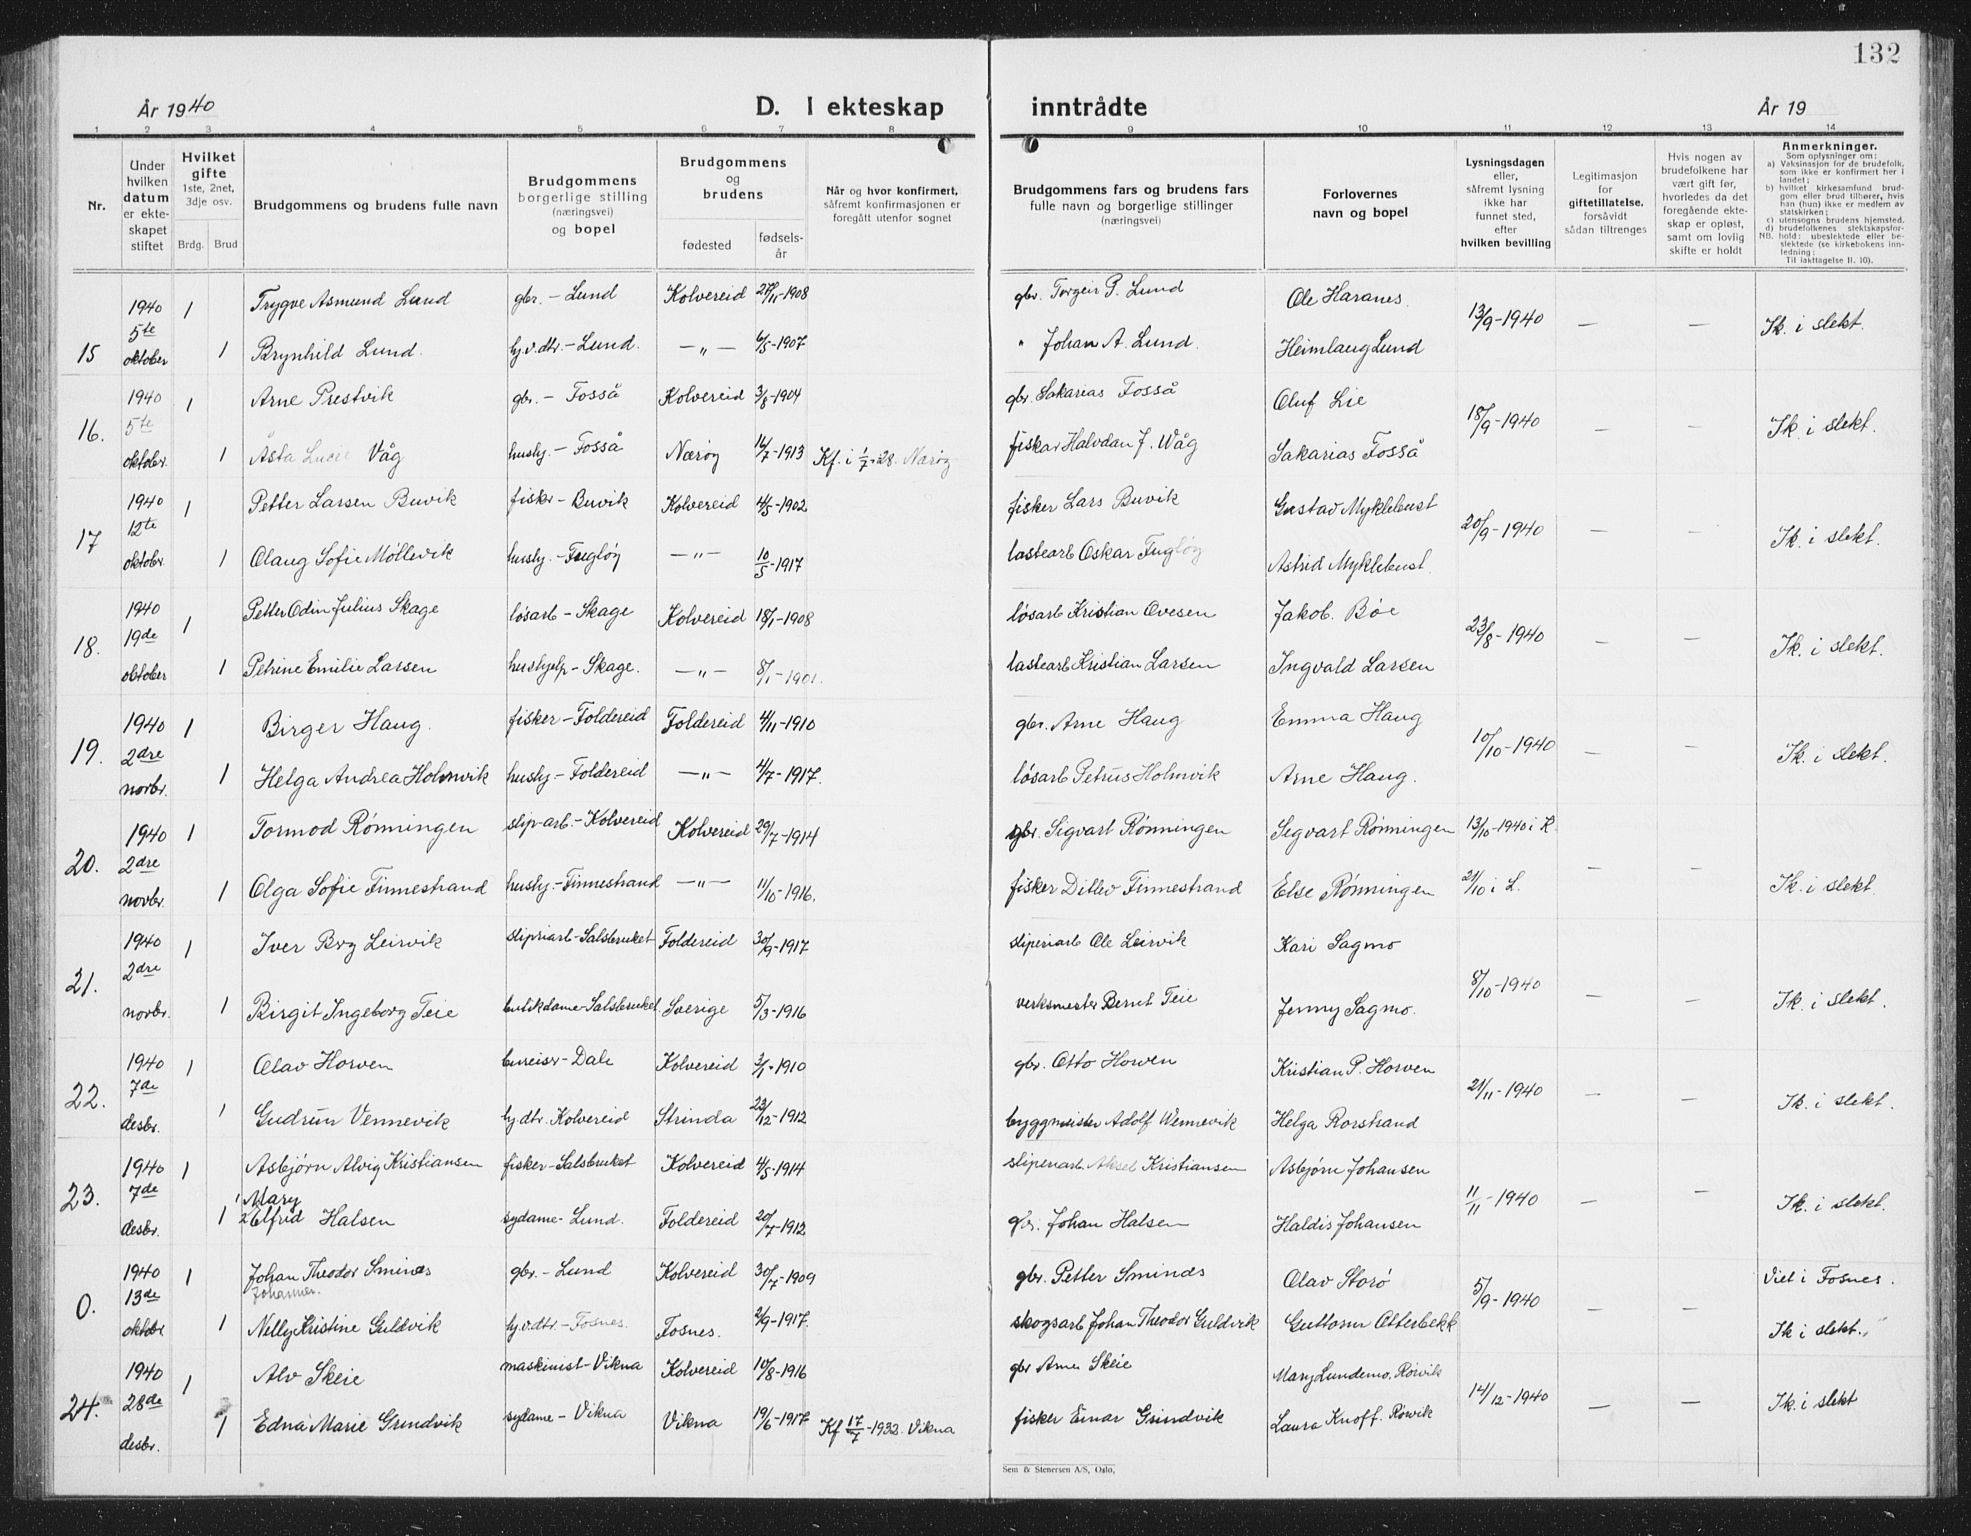 132
År 1940 D. I ekteskap inntrådte År 19
1 2 3 4 5 6 7 8 9 10 11 12 13 14
Nr.
Under hvilken datum er ekteskapet stiftet
Hvilket gifte 1ste, 2net, 3dje osv.
Brdg. Brud
Brudgommens og brudens fulle navn
Brudgommens borgerlige stilling (næringsvei) og bopel
Brudgommens og brudens
fødested fødselsår
Når og hvor konfirmert, såfremt konfirmasjonen er foregått utenfor sognet
Brudgommens fars og brudens fars fulle navn og borgerlige stillinger (næringsvei)
Forlovernes navn og bopel
Lysningsdagen eller, såfremt lysning ikke har funnet sted, efter hvilken bevilling
Legitimasjon for giftetillatelse, forsåvidt sådan tiltrenges
Hvis nogen av brudefolkene har vært gift før, hvorledes da det foregående ekteskap er opløst, samt om lovlig skifte er holdt
Anmerkninger.
Som oplysninger om:
a) Vaksinasjon for de brudefolk, som ikke er konfirmert her i landet;
b) hvilket kirkesamfund brudgom eller brud tilhører, hvis han (hun) ikke er medlem av statskirken;
c) utensogns brudens hjemsted.
d) brudefolkenes slektskapsforhold: ubeslektede eller beslektede (se kirkebokens innledning:
NB. Til iakttagelse II. 10).
15 1940 5te oktober 1 Trygve Asmund Lund gbr. - Lund Kolvereid 28/11-1908 gbr. Torgeir P. Lund Ole Haranes 13/9-1940 — — Ik. i slekt.
1 Brynhild Lund. hj.v.dtr. - Lund. —"— 6/5-1907 " Johan A. Lund. Heimlaug Lund
16. 1940 5te oktobr. 1 Arne Prestvik gbr. - Fosså Kolvereid 3/8-1904 gbr. Sakarias Fosså Oluf Lie 18/9-1940 — — Ik. i slekt.
1 Åsta Lucie Våg hushj. - Fosså Nærøy 16/7-1913 Kf. i 1/7-28. Nærøy fiskar Halvdan J. Wåg Sakarias Fosså
17 1940 12te oktobr. 1 Petter Larsen Buvik fisker - Buvik Kolvereid 4/5-1902 fisker Lars Buvik Gustav Myklebust 20/9-1940 — — Ik. i slekt.
1 Olaug Sofie Møllevik hushj. - Fugløy —"— 10/5-1917 lastearb Oskar Fugløy Astrid Myklebust.
18. 1940 19de oktober 1 Petter Odin Julius Skage løsarb - Skage Kolvereid 18/1-1908 løsarb Kristian Ovesen Jakob. Bøe 23/8-1940 — — Ik. i slekt.
1 Petrine Emilie Larsen hushjelp - Skage. —"— 8/1-1901. lastearb Kristian Larsen Ingvald Larsen
19. 1940 2dre novbr. 1 Birger Haug. fisker - Foldereid Foldereid 4/11-1910 gbr. Arne Haug Emma Haug 10/10-1940 — — Ik. i slekt.
1 Helga Andrea Holmvik hushj - Foldereid —"— 4/7-1917. løsarb Petrus Holmvik Arne Haug.
20. 1940 2dre novbr. 1 Tormod Rønningen slip-arb. - Kolvereid Kolvereid 29/7-1914 gbr. Sigvart Rønningen Segvart Rønningen 13/10-1940 i K. — — Ik. i slekt.
1 Olga Sofie Finnestrand hushj. - Finnestrand —"— 11/10-1916. fisker Ditlev Finnestrand Else Rønningen 21/10 i L.
21. 1940 2dre novbr. 1 Iver Bry Leirvik slipriarb - Salsbruket Foldereid 30/9-1917 sliperiarb Ole Leirvik Kari Sagmo 8/10-1940 — — Ik. i slekt.
1 Birgit Ingeborg Teie butikdame - Salsbruket Sverige 5/3-1916 verksmester Bernt Teie Jenny Sagmo.
22. 1940 7de desbr. 1 Olav Horven bureiser - Dale Kolvereid 3/1-1910 gbr. Otto Horven Kristian P. Horven 21/11-1940 — — Ik. i slekt.
1 Gudrun Vennevik hj.dtr. Kolvereid Strinda 23/12-1912 byggmeister Adolf Wennevik Helga Rorstrand
23. 1940 7de desbr. 1 Asbjørn Alvig Kristiansen fisker - Salsbruket Kolvereid 4/5-1914 sliperiarb. Aksel Kristiansen Asbjørn Johansen 11/11-1940 — — Ik. i slekt.
1 Mary
1 2 Elfrid Halsen sydame - Lund. Foldereid 20/7-1912 gbr. Johan Halsen Haldis Johansen
0. 1940 13de oktobr 1 Johan Theodor Sminds gbr. - Lund Kolvereid 30/7-1909 gbr. Petter Sminds Olav Storø 5/9-1940 — — Viet i Fosnes.
Johannes.
1 Nelly Kristine Guldvik hj.v.dtr - Fosnes. Fosnes. 2/9-1917. skogsarb Johan Theodor Guldvik Guttorm Otterbekk Ik i slekt.
24. 1940 28de desbr. 1 Alv Skeie maskinist - Vikna Kolvereid 10/8-1916 gbr Arne Skeie Mary Lundemo, Rørvik 14/12-1940 — — Ik. i slekt
1 Edna Marie Grindvik sydame - Vikna Vikna 19/6-1917 Kf 17/7-1932. Vikna fisker Einar Grindvik Laura Knoff. Rørvik
Sem & Stenersen A/S, Oslo.